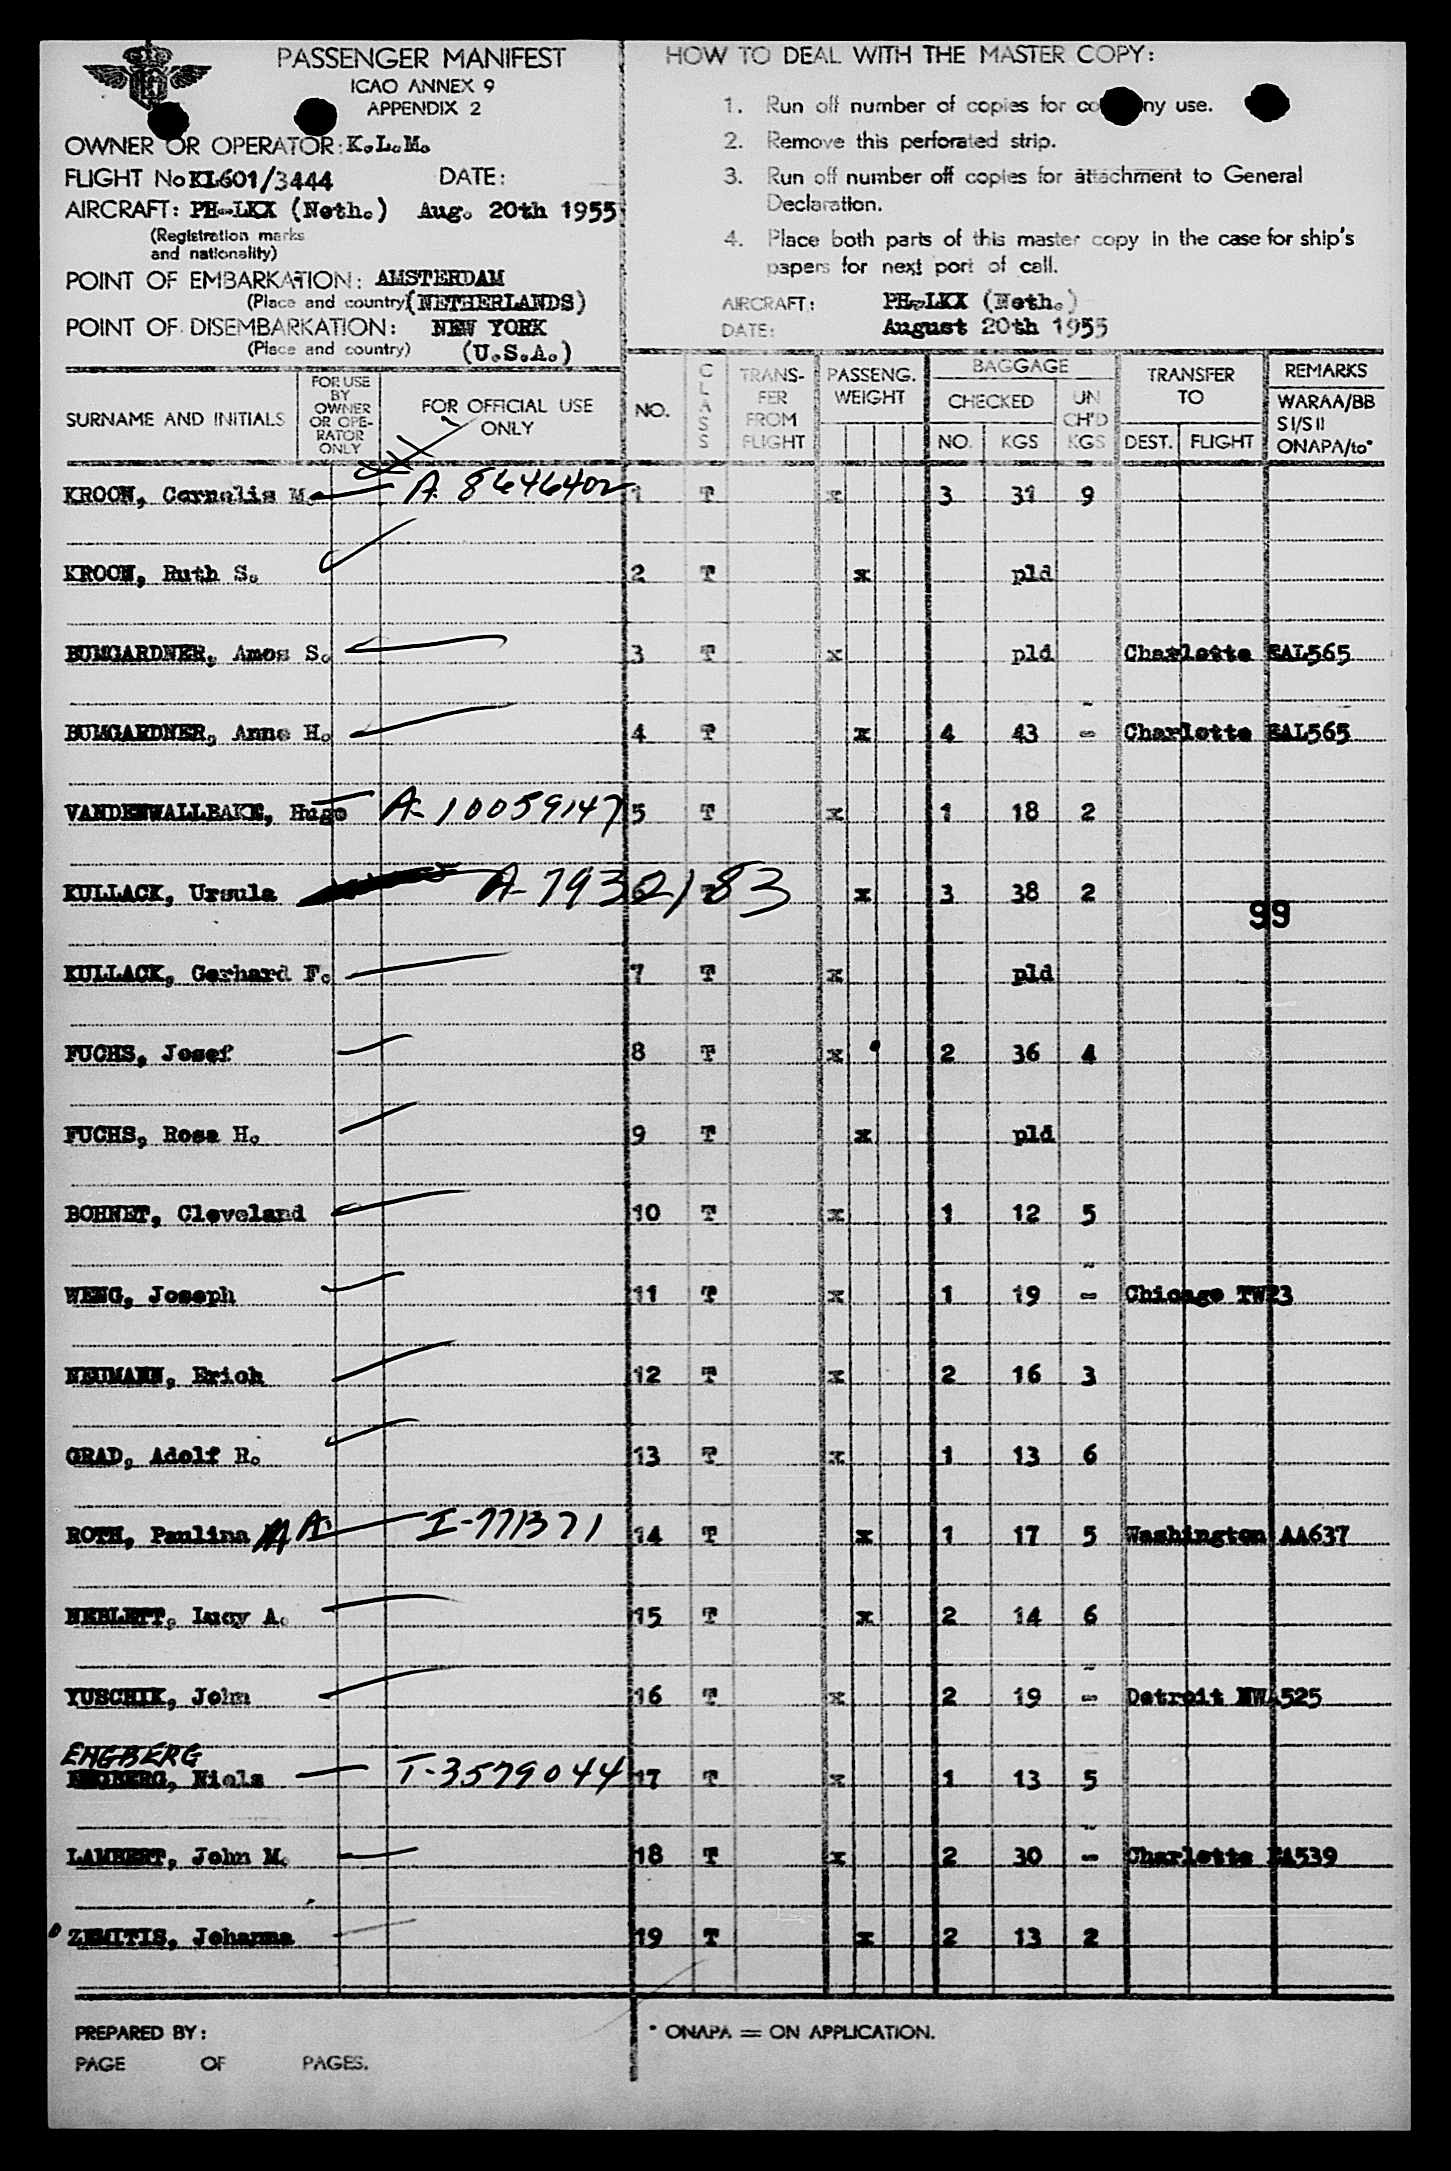 PASSENGER MANIFEST
ICAO ANNEX 9
APPENDIX 2
OWNER OR OPERATOR: K.L.M.
FLIGHT No KL601/3444 DATE:
AIRCRAFT: PH-LKX (Neth.) Aug. 20th 1955
(Registration marks
and nationality)
POINT OF EMBARKATION: AMSTERDAM
(Place and country) (NETHERLANDS)
POINT OF DISEMBARKATION: NEW YORK
(Place and country) (U.S.A.)
HOW TO DEAL WITH THE MASTER COPY:
1. Run off number of copies for company use.
2. Remove this perforated strip.
3. Run off number off copies for attachment to General
Declaration.
4. Place both parts of this master copy in the case for ship's
papers for next port of call.
AIRCRAFT: PH-LKX (Neth.)
DATE: August 20th 1955
SURNAME AND INITIALS FOR USE BY OWNER OR OPE-RATOR ONLY FOR OFFICIAL USE ONLY NO. CLASS TRANS-FER FROM FLIGHT PASSENG. WEIGHT BAGGAGE CHECKED NO. KGS UN CH'D KGS TRANSFER TO DEST. FLIGHT REMARKS WARAA/BB SI/SII ONAPA/to*
KROON, Cornelis M. A 8646402 1 T x 3 31 9
KROON, Ruth S. 2 T x pld
BUMGARDNER, Amos S. 3 T x pld Charlotte EAL565
BUMGARDNER, Anne H. 4 T x 4 43 - Charlotte EAL565
VANDENWALLBAKE, Hugo A-10059147 5 T x 1 18 2
KULLACK, Ursula A-7932183 6 T x 3 38 2
99
KULLACK, Gerhard F. 7 T x pld
FUCHS, Josef 8 T x 2 36 4
FUCHS, Rosa H. 9 T x pld
BOHNET, Cleveland 10 T x 1 12 5
WENG, Joseph 11 T x 1 19 - Chicago TW23
NEUMANN, Erich 12 T x 2 16 3
GRAD, Adolf R. 13 T x 1 13 6
ROTH, Paulina M A. I-771371 14 T x 1 17 5 Washington AA637
NEBLETT, Lucy A. 15 T x 2 14 6
YUSCHIK, John 16 T x 2 19 - Detroit NWA525
ENGBERG
Niels T-3579044 17 T x 1 13 5
LAMBERT, John M. 18 T x 2 30 - Charlotte EA539
ZEMITIS, Johanna 19 T x 2 13 2
PREPARED BY:
PAGE OF PAGES.
* ONAPA = ON APPLICATION.